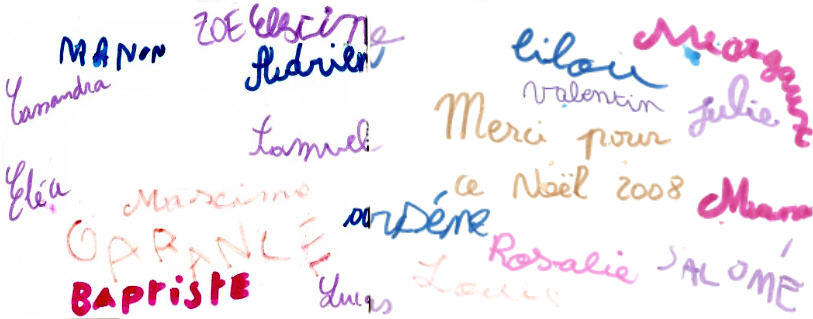 ZOE
MANON
Adrien
Lilou
Morgane
Cassandra
Valentin
Julie
Samuel
Merci pour
Eléa
ce Noël 2008
Maxime
GARANCE
Rosalie
SALOMÉ
Louis
BAPTISTE
Lucas